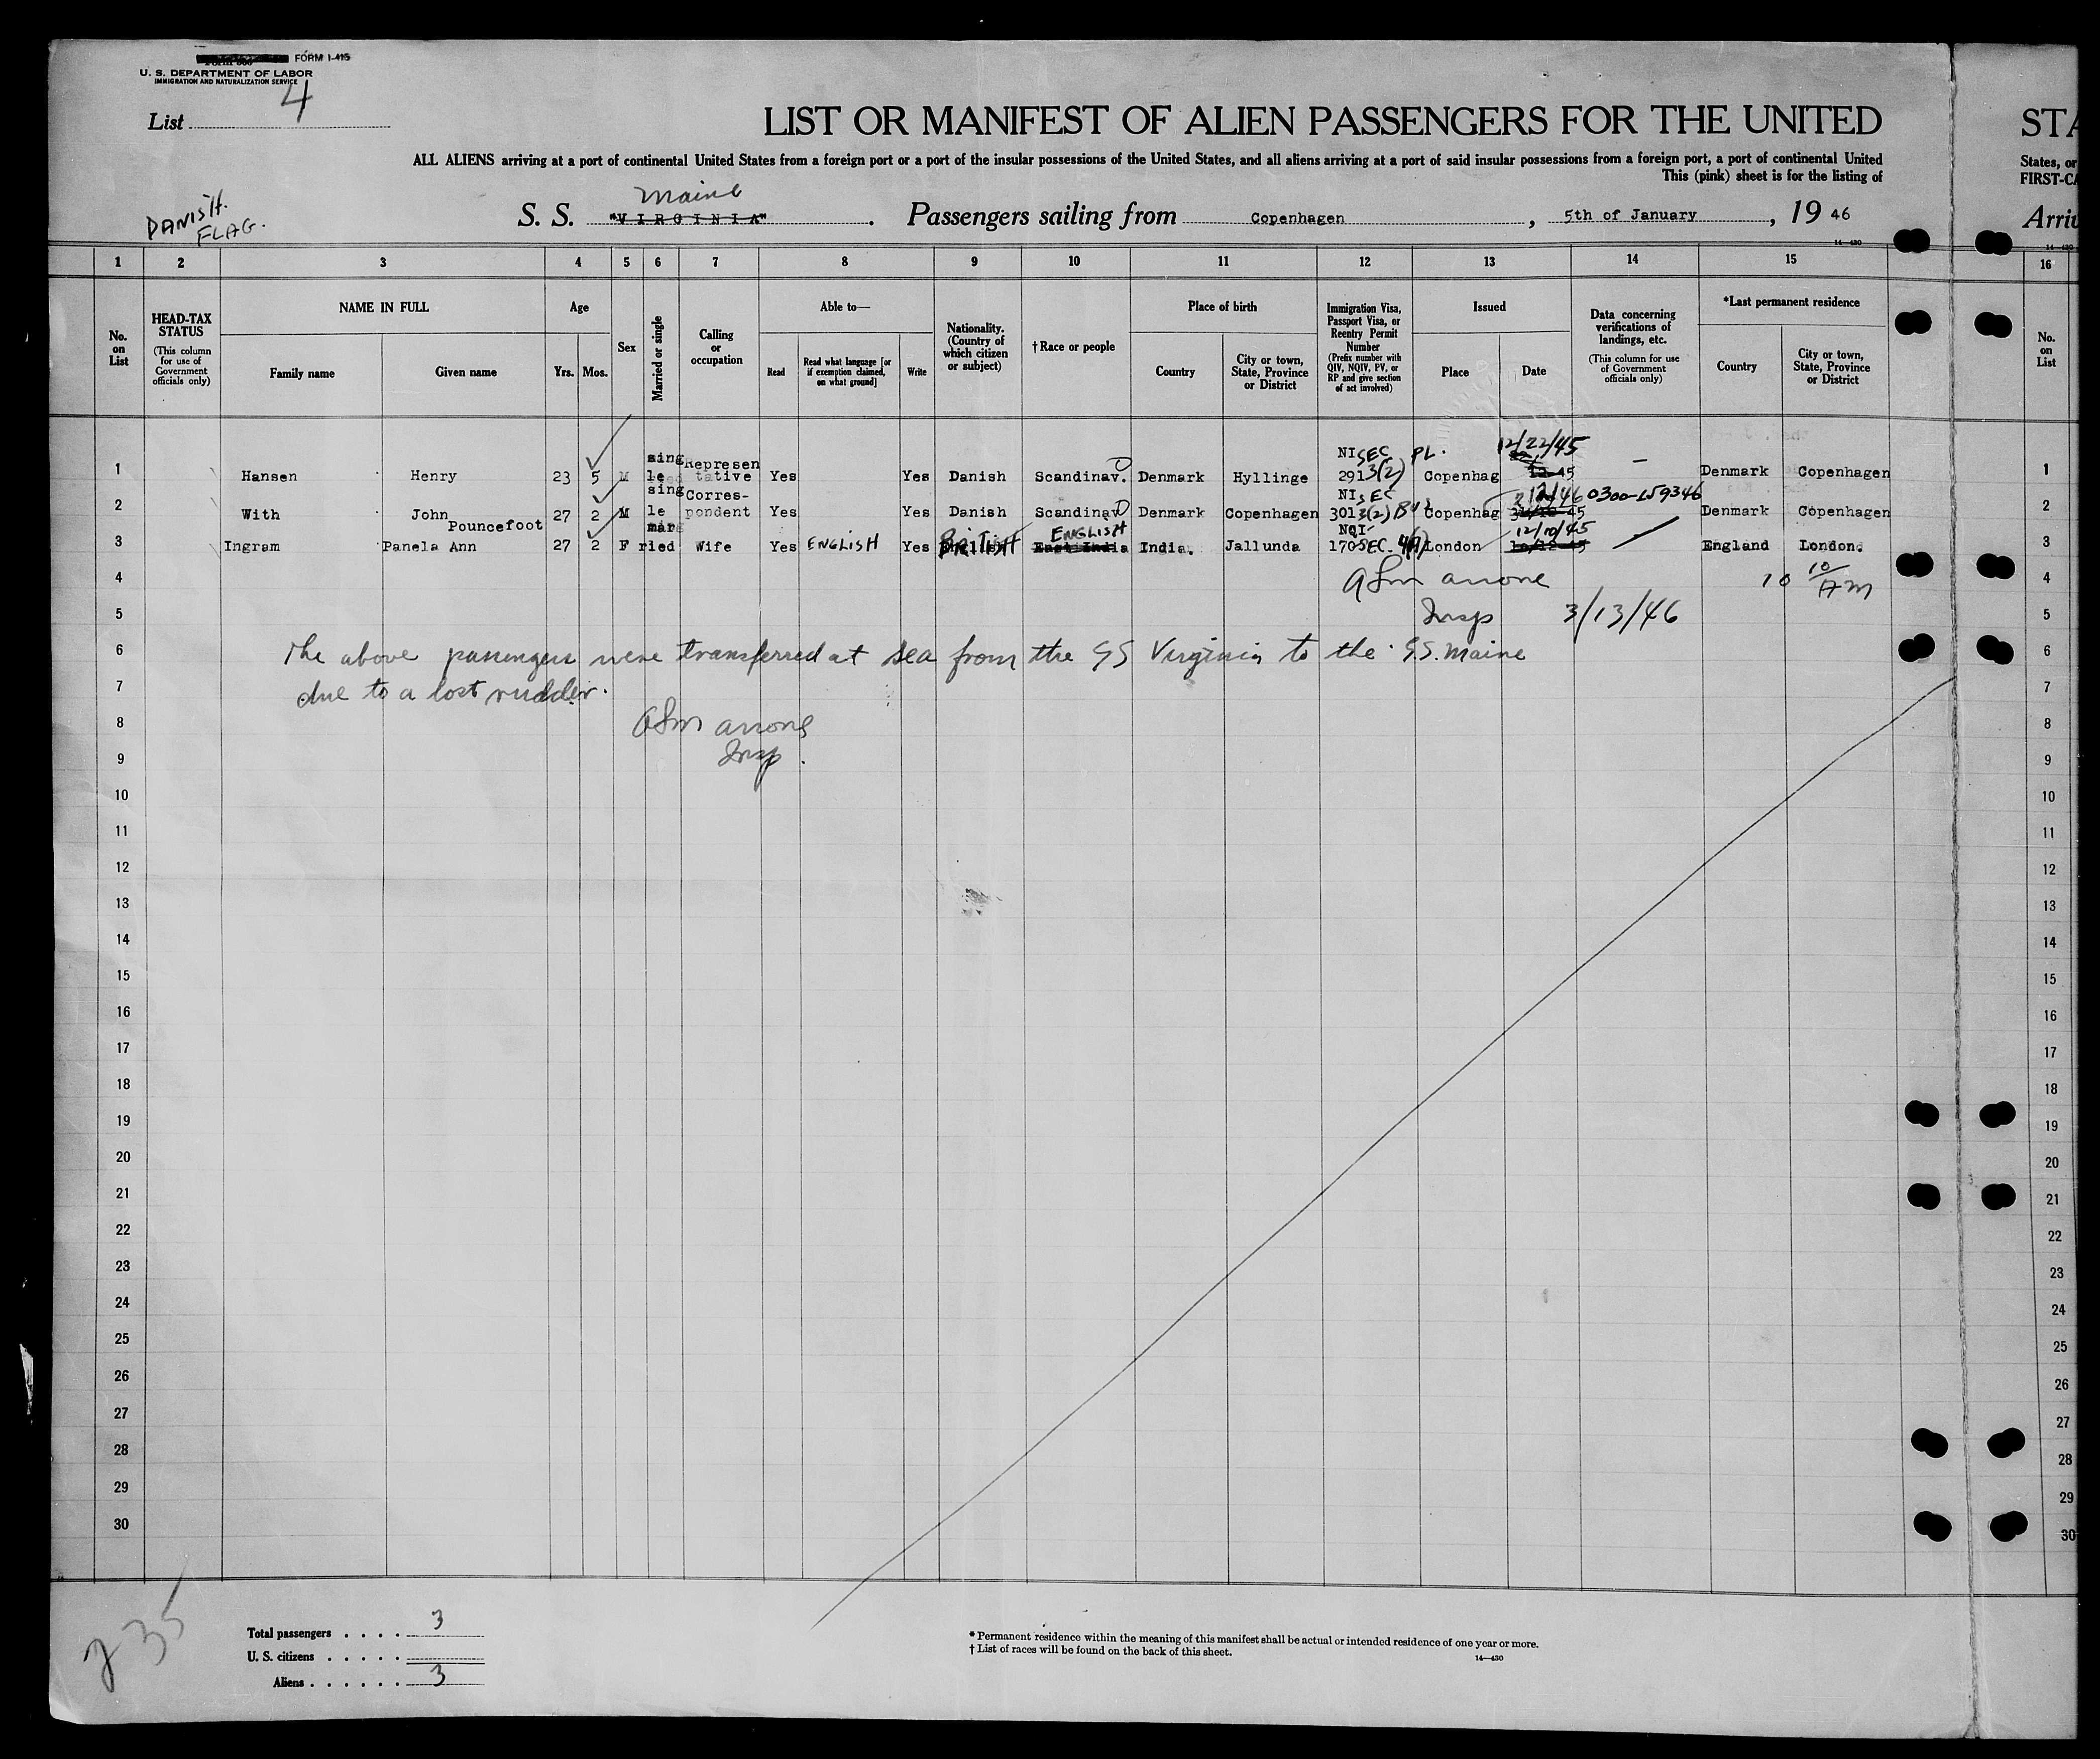 FORM I-415
U. S. DEPARTMENT OF LABOR
IMMIGRATION AND NATURALIZATION SERVICE
List 4
LIST OR MANIFEST OF ALIEN PASSENGERS FOR THE UNITED
STA
ALL ALIENS arriving at a port of continental United States from a foreign port or a port of the insular possessions of the United States, and all aliens arriving at a port of said insular possessions from a foreign port, a port of continental United
States, or
This (pink) sheet is for the listing of
FIRST-CA
DANISH.
FLAG.
Maine
S. S. "VIRGINIA". Passengers sailing from Copenhagen, 5th of January, 19 46
Arriv
14—430
1 2 3 4 5 6 7 8 9 10 11 12 13 14 15 16
No. on List
HEAD-TAX STATUS
(This column for use of Government officials only)
NAME IN FULL
Family name
Given name
Age
Yrs.
Mos.
Sex
Married or single
Calling or occupation
Able to—
Read
Read what language [or if exemption claimed, on what ground]
Write
Nationality. (Country of which citizen or subject)
†Race or people
Place of birth
Country
City or town, State, Province or District
Immigration Visa, Passport Visa, or Reentry Permit Number
(Prefix number with QIV, NQIV, PV, or RP and give section of act involved)
Issued
Place
Date
Data concerning verifications of landings, etc.
(This column for use of Government officials only)
*Last permanent residence
Country
City or town, State, Province or District
No. on List
1 Hansen Henry 23 5 M single Representative Yes Yes Danish Scandinav. Denmark Hyllinge NI SEC 2913(2) PL. Copenhag 12/22/45 — Denmark Copenhagen 1
2 With John 27 2 M single Correspondent Yes Yes Danish Scandinav Denmark Copenhagen NI SEC 3013(2) Copenhag 0300-159346 Denmark Copenhagen 2
Pouncefoot
3 Ingram Panela Ann 27 2 F married Wife Yes ENGLISH Yes BRITISH ENGLISH East India India. Jallunda NQI- 170 SEC. London 12/10/45 England London. 3
4 10 10/AM
5 Insp 3/13/46
6 The above passengers were transferred at sea from the SS Virginia to the S.S. Maine 6
7 due to a lost rudder. 7
8 8
9 Insp. 9
10 10
11 11
12 12
13 13
14 14
15 15
16 16
17 17
18 18
19 19
20 20
21 21
22 22
23 23
24 24
25 25
26 26
27 27
28 28
29 29
30 30
235
Total passengers . . . . 3
U. S. citizens . . . . .
Aliens . . . . . . 3
* Permanent residence within the meaning of this manifest shall be actual or intended residence of one year or more.
† List of races will be found on the back of this sheet.
14—430